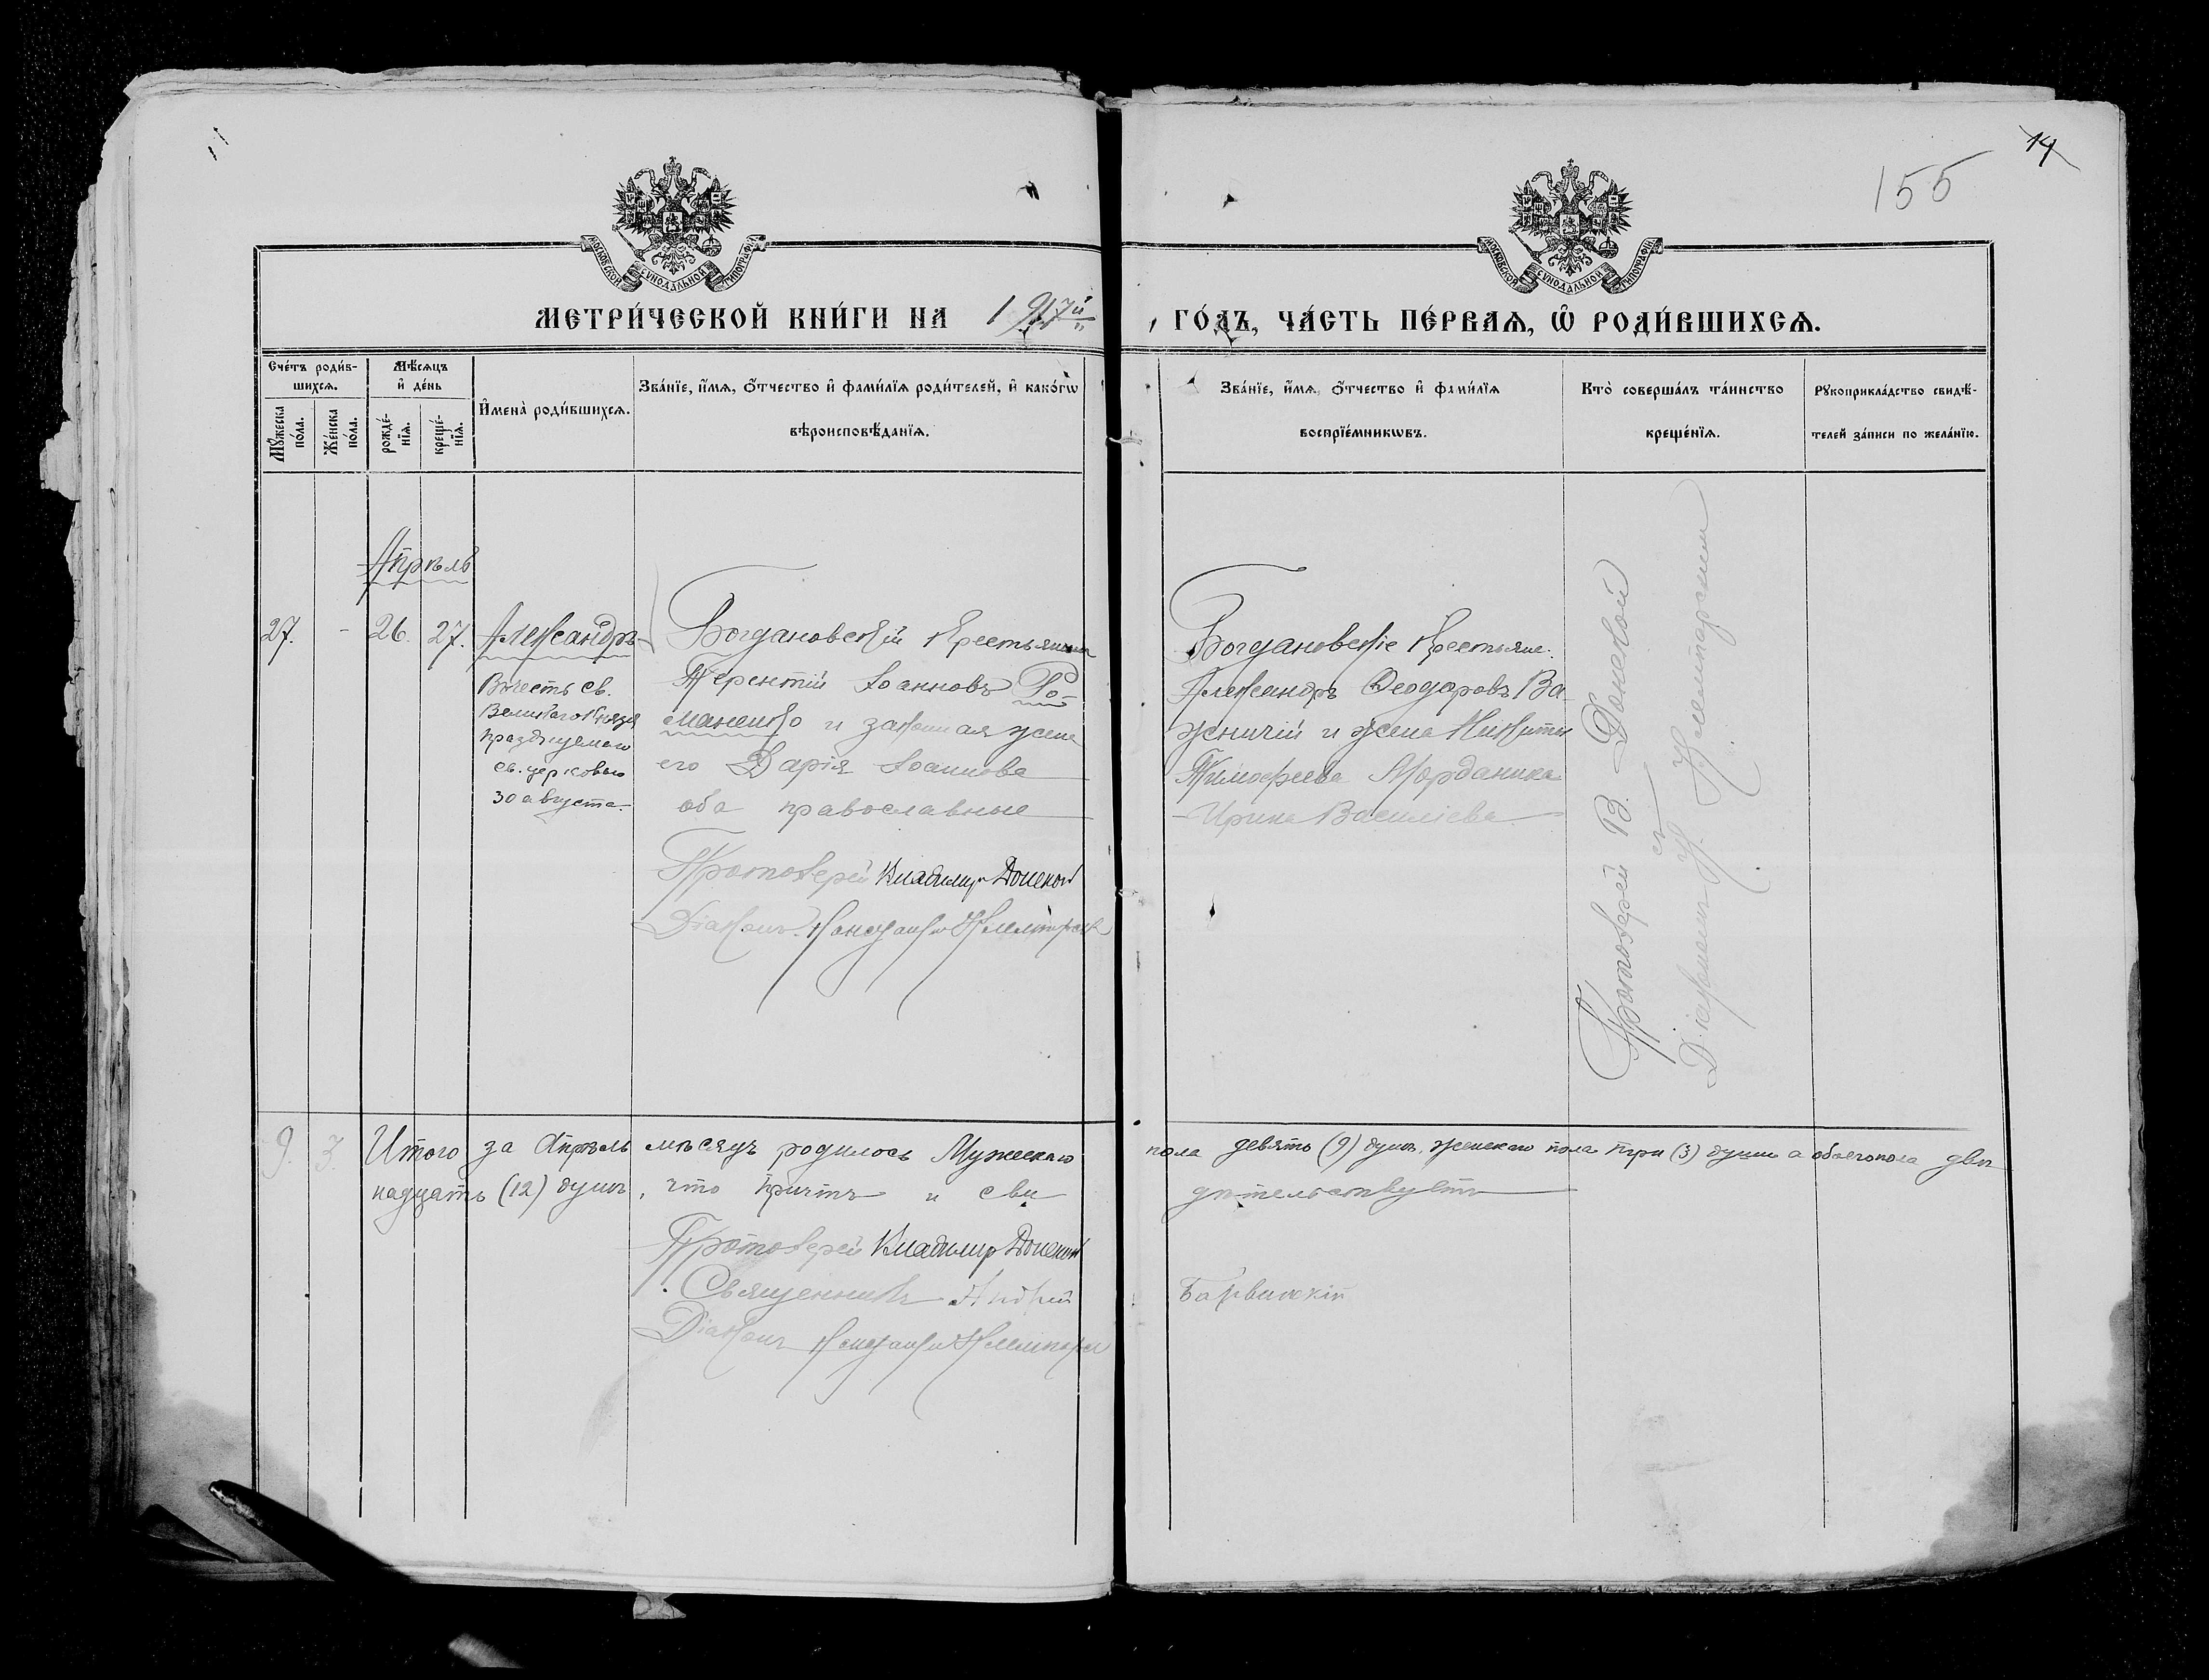 11
14
155
МОСКОВСКОЙ СѴНОДАЛЬНОЙ ТИПОГРАФІИ
МОСКОВСКОЙ СѴНОДАЛЬНОЙ ТИПОГРАФІИ
МЕТРИ́ЧЕСКОЙ КНИ́ГИ НА 1917й
ГО́ДЪ, ЧА́СТЬ ПЕ́РВАѦ, Ѡ҆ РОДИ́ВШИХСѦ.
Сче́тъ роди́в-
шихсѧ.
Мꙋ́жеска
по́ла.
Же́нска
по́ла.
Мѣ́сѧцъ
и҆ де́нь
рожде́-
нїѧ.
креще́-
нїѧ.
И҆мена̀ роди́вшихсѧ.
Зва́нїе, и҆́мѧ, ѻ҆́тчество и҆ фами́лїѧ роди́телей, и҆ како́гѡ
вѣроисповѣ́данїѧ.
Зва́нїе, и҆́мѧ, ѻ҆́тчество и҆ фами́лїѧ
воспрїе́мникѡвъ.
Кто̀ соверша́лъ та́инство
креще́нїѧ.
Рꙋкоприкла́дство свидѣ́-
телей за́писи по жела́нїю.
Апрѣль
27. - 26. 27. Александръ
Въ честь св.
Великаго Князя
празднуемаго
св. церковью
30 августа.
Богдановскій крестьянинъ
Терентій Іоанновъ Ро-
маненко и законная жена
его Дарія Іоаннова
оба православные
Протоіерей Владиміръ Донской
Діаконъ
Богдановскіе крестьяне:
Александръ Ѳеодоровъ Ва
жничій и жена Никиты
Тимоѳеева Морданика
Ирина Василіева
Протоіерей В. Донской
съ
Діакономъ
9. 3. Итого за Апрѣль мѣсяцъ родилось Мужескаго
пола девять (9) душъ, женскаго пола три (3) души а обоего пола двѣ
надцать (12) душъ, что причтъ и сви
дѣтельствуетъ
Протоіерей Владиміръ Донской
Священникъ Андрей
Барвинскій
Діаконъ